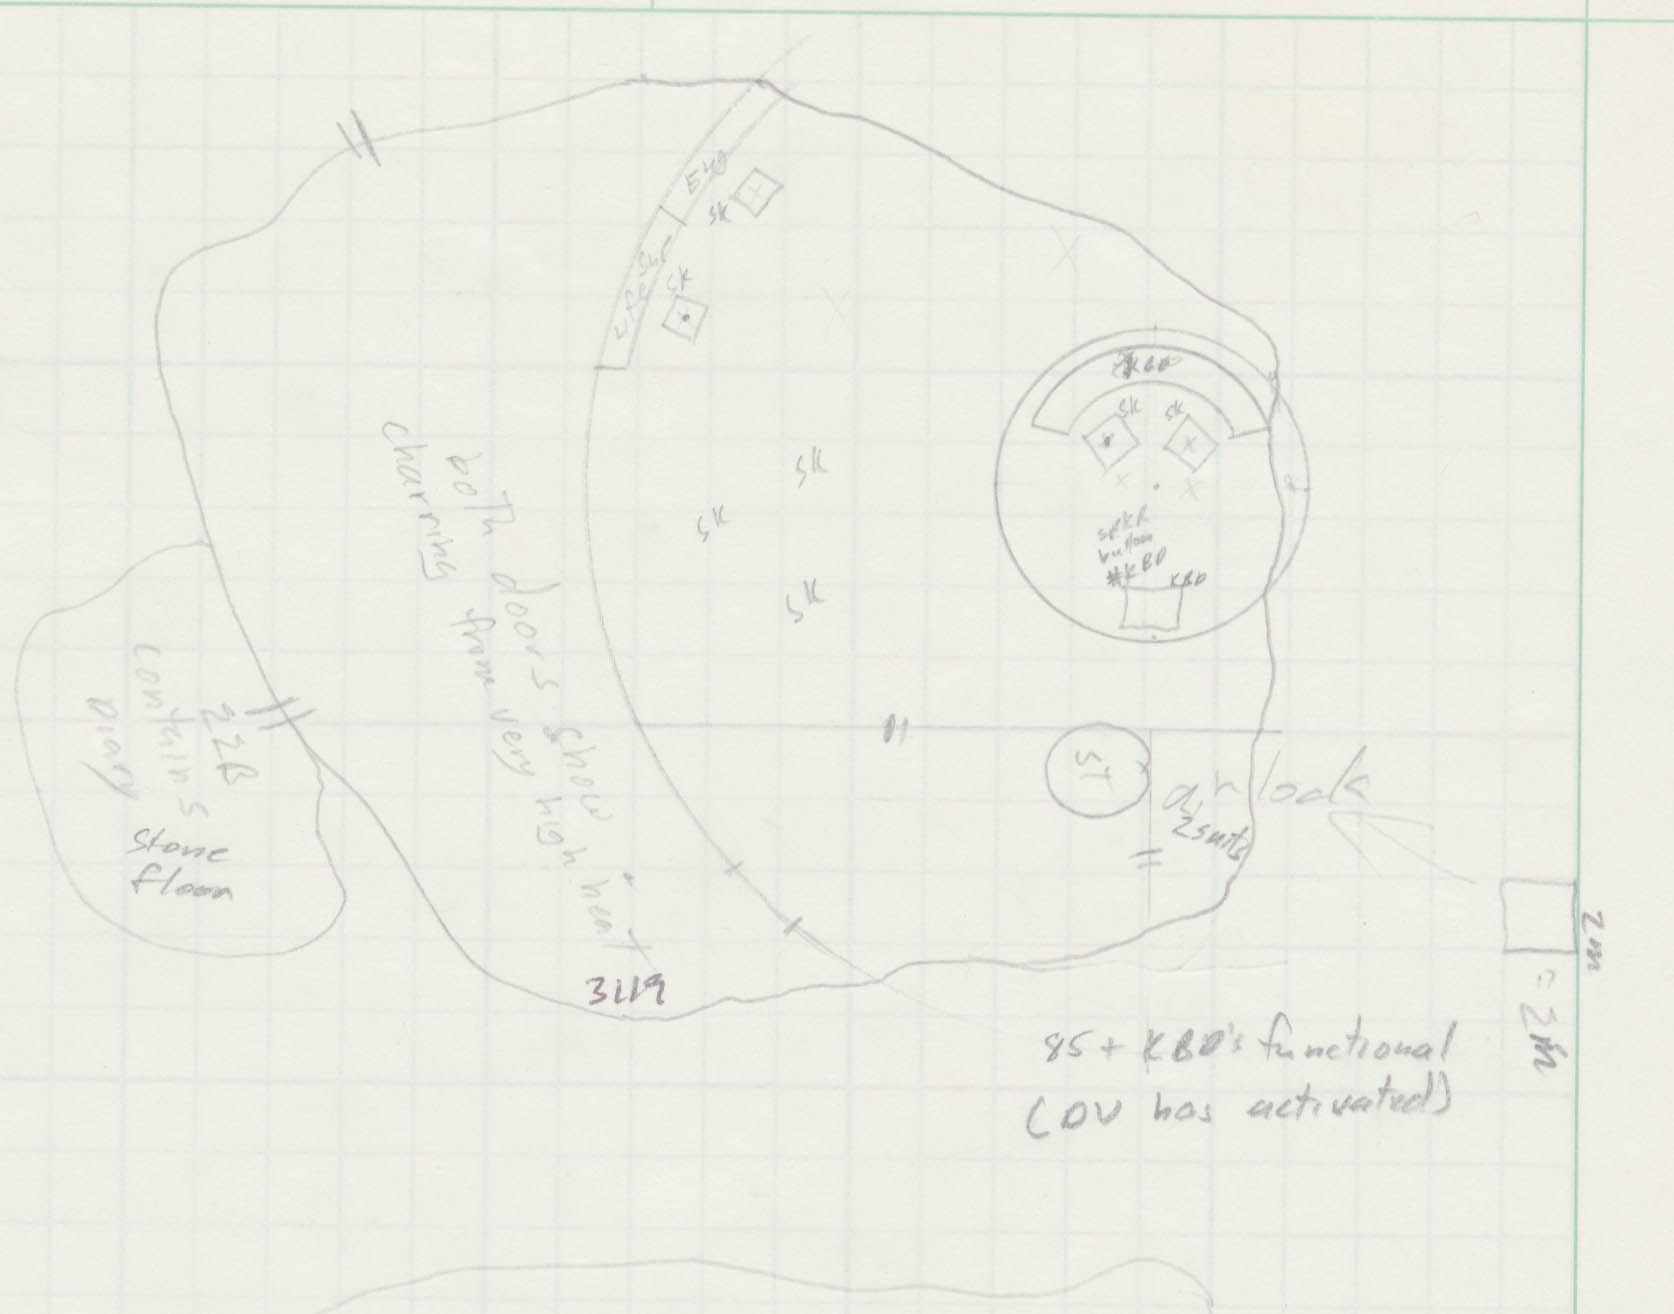 SK
SK
KBD
SK
SK
SK
SK
SK
SPKR
button
#KBD
KBD
both doors show
charring from very high heat
22B
contains
Diary
Stone
floor
ST
air lock
2 suits
3119
2m
= 2m
85 + KBD's functional
(DV has activated)